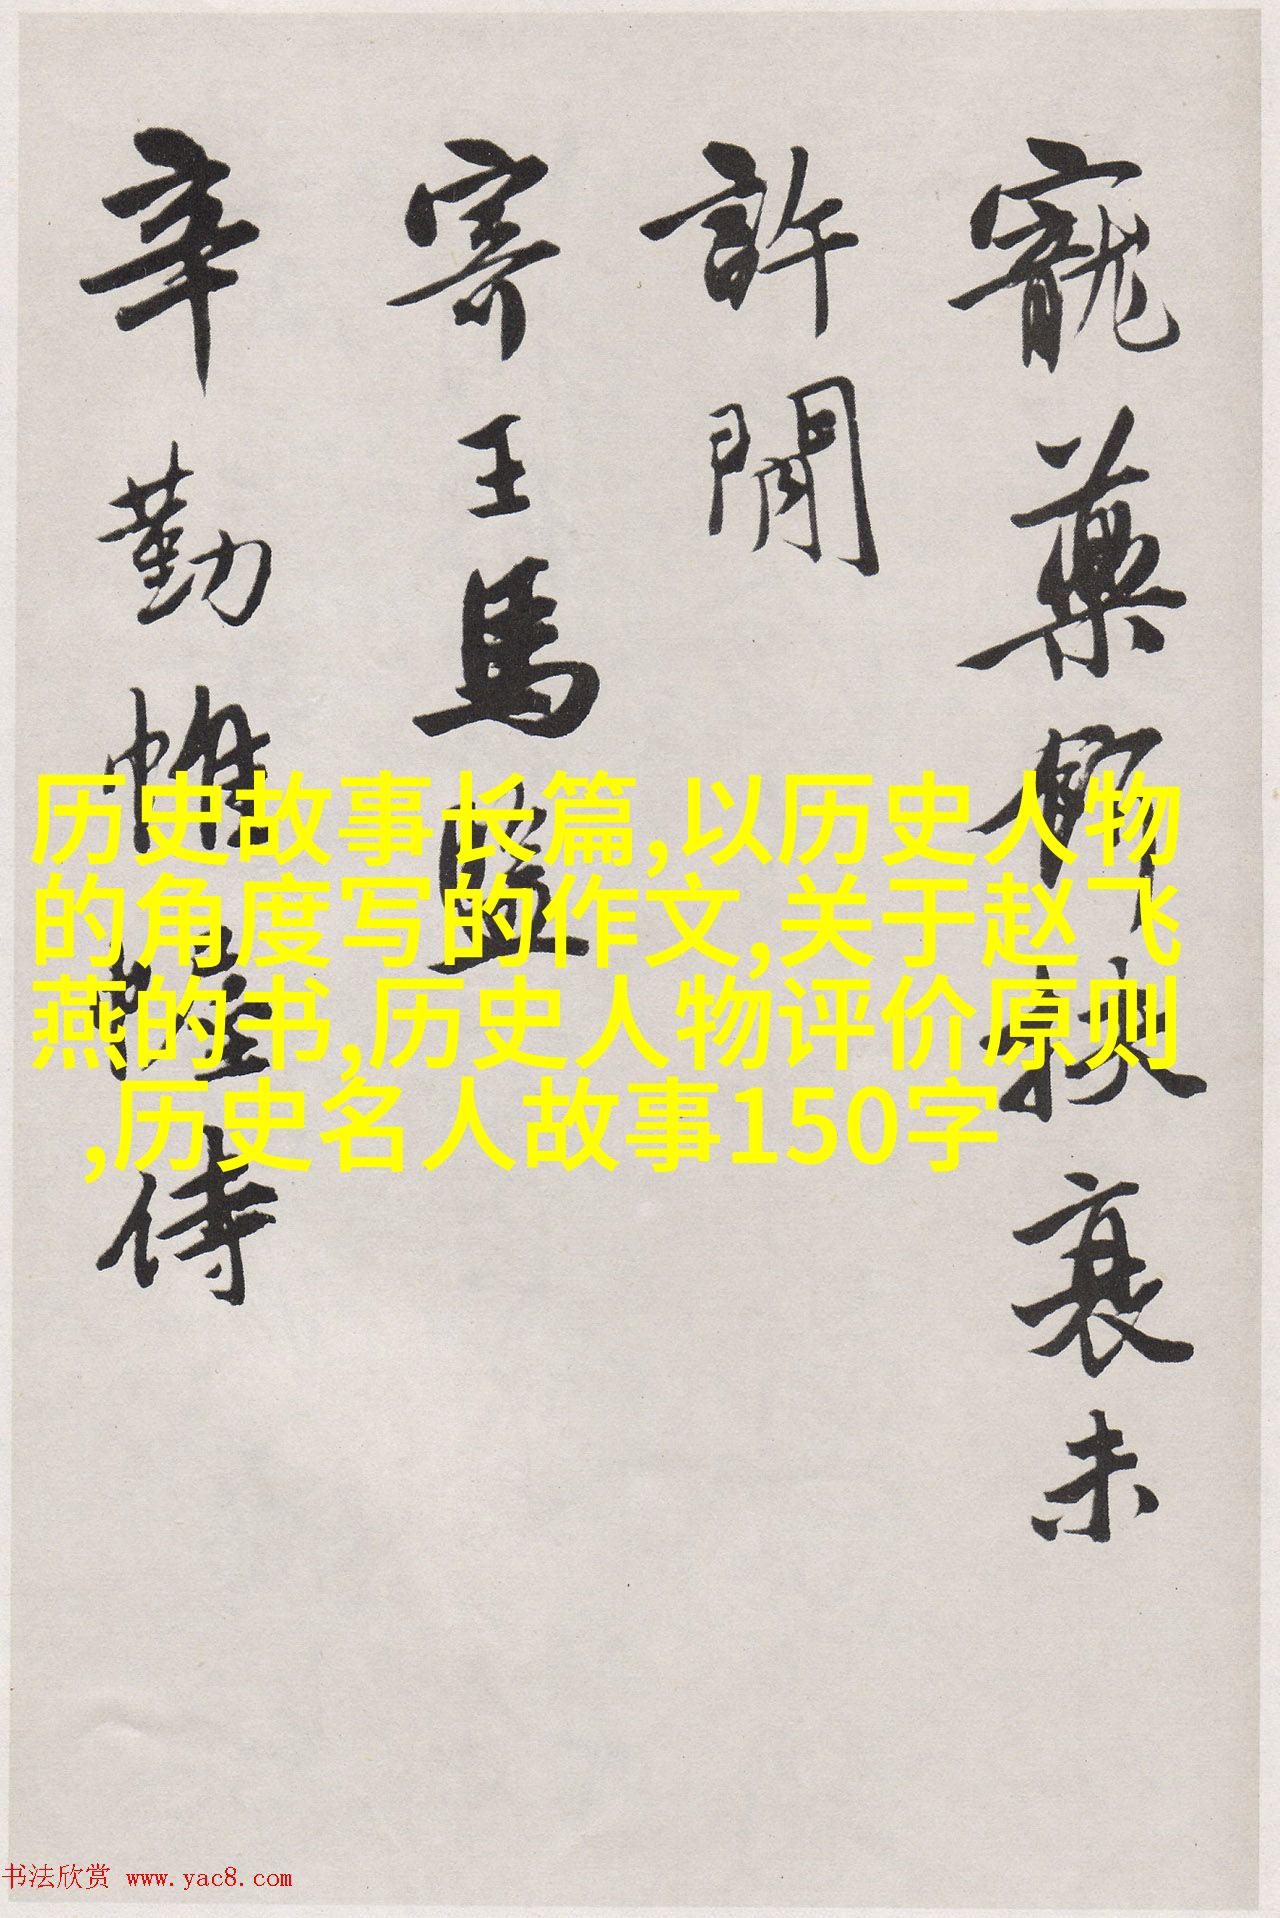 寵藥扶衰未
許閒
寄王馬監
辛勤帷幄侍
历史故事长篇,以历史人物
的角度写的作文,关于赵飞
燕的书,历史人物评价原则
,历史名人故事150字
书法欣赏 www.yac8.com